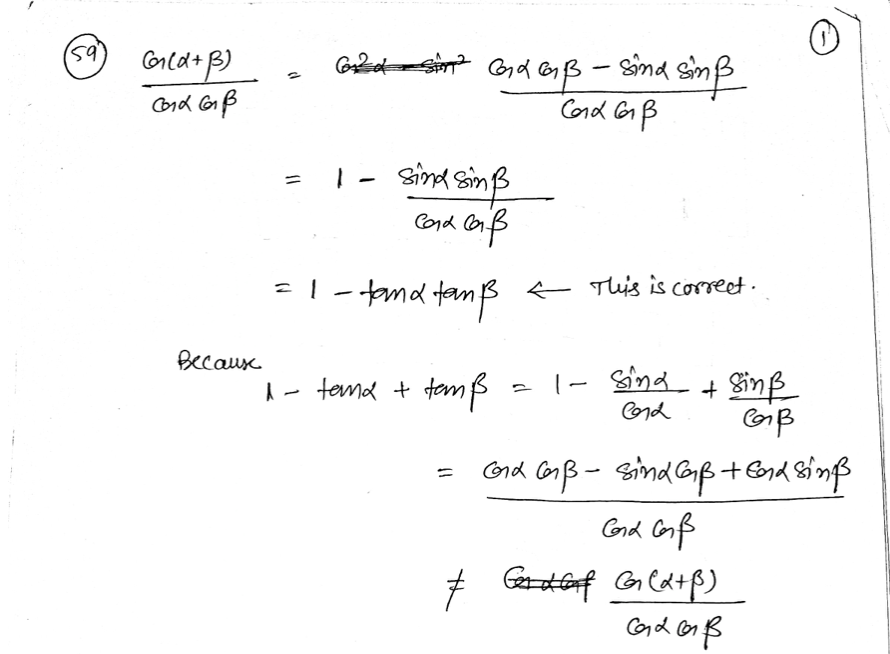 ①
(59) cos(α+β) / cosα cosβ = cosα cosβ – sinα sinβ / cosα cosβ
= 1 – sinα sinβ / cosα cosβ
= 1 – tanα tanβ ← This is correct.
Because
1 – tanα + tanβ = 1 – sinα / cosα + sinβ / cosβ
= cosα cosβ – sinα cosβ + cosα sinβ / cosα cosβ
≠ cos(α+β) / cosα cosβ